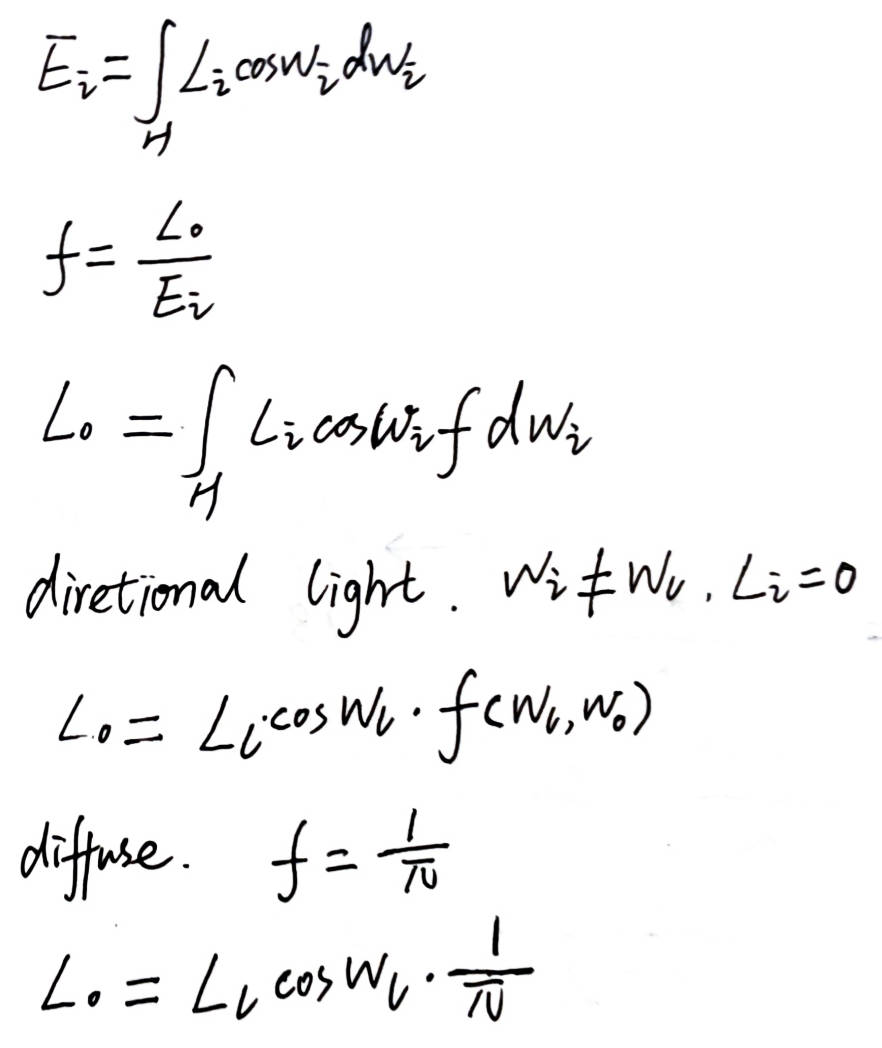 E̅ᵢ = ∫_H Lᵢ cos wᵢ dwᵢ
f = L₀ / Eᵢ
L₀ = ∫_H Lᵢ cos wᵢ f dwᵢ
diretional light. wᵢ ≠ w_l, Lᵢ = 0
L₀ = L_l · cos w_l · f(w_l, w₀)
diffuse. f = 1/π
L₀ = L_l cos w_l · 1/π